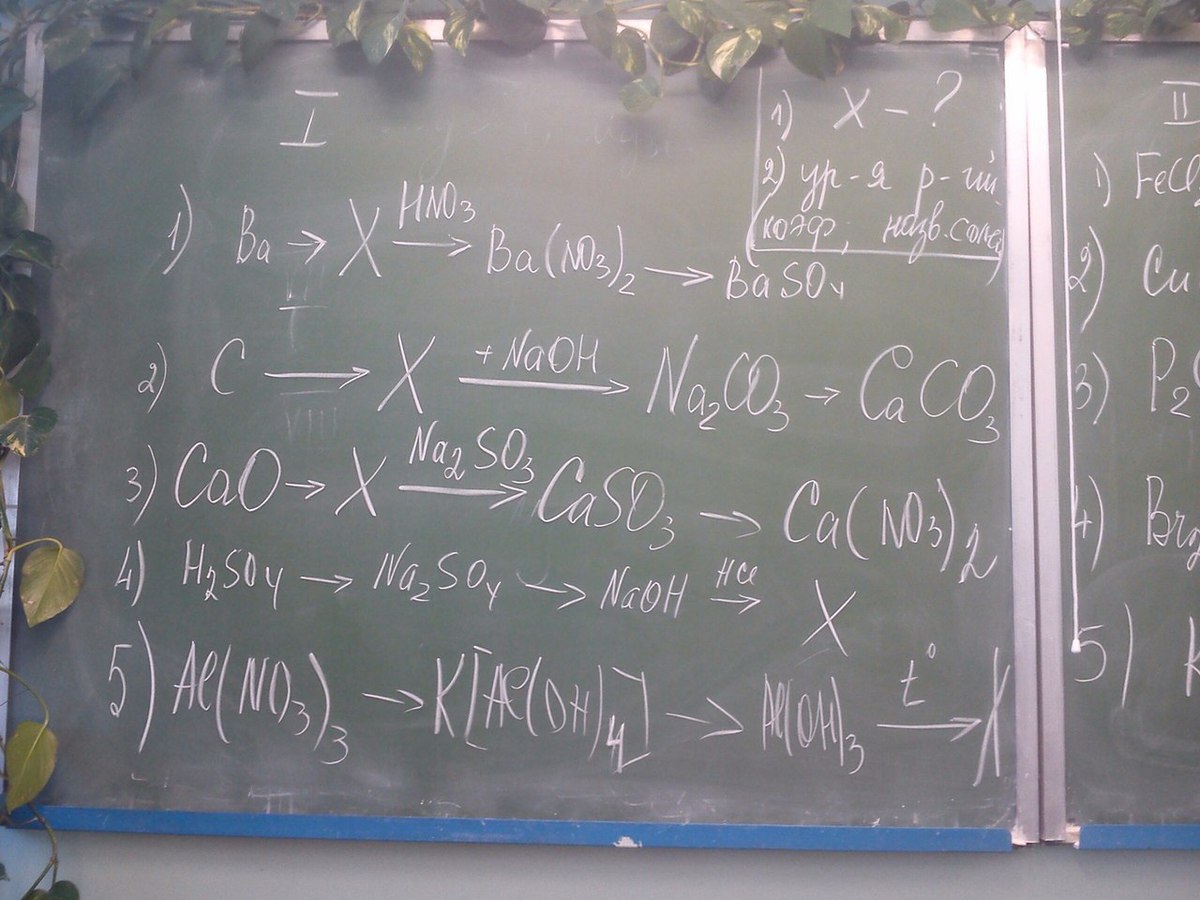 I
1) X - ?
2) ур-я р-ий
(коэф, назв. солей)
1) Ba → X HNO₃→ Ba(NO₃)₂ → BaSO₄
2) C → X +NaOH→ Na₂CO₃ → CaCO₃
3) CaO → X Na₂SO₃→ CaSO₃ → Ca(NO₃)₂
4) H₂SO₄ → Na₂SO₄ → NaOH HCl→ X
5) Al(NO₃)₃ → K[Al(OH)₄] → Al(OH)₃ t°→ X
II
1)
2) Cu
3)
4)
5)